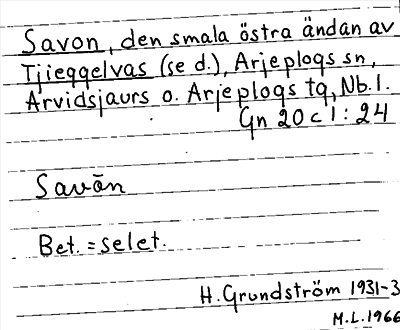 Savon, den smala östra ändan av
Tjieggelvas (se d.), Arjeplogs sn,
Arvidsjaurs o. Arjeplogs tg, Nb. l.
Gn 20 c 1 : 24
Savōn
Bet. = selet.
H. Grundström 1931-3
M.L. 1966